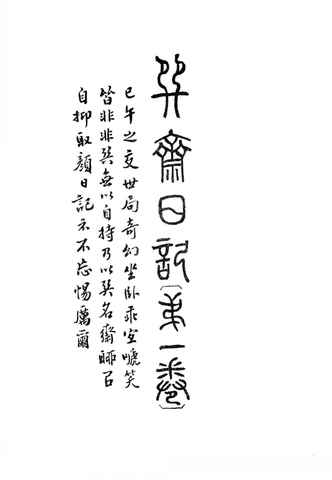 巽齋日記〔第一卷〕
巳午之交世局奇幻坐卧乖宜嗁笑
皆非非巽無以自持乃以巽名齋聊㠯
自抑取顏日記示不忘惕厲爾